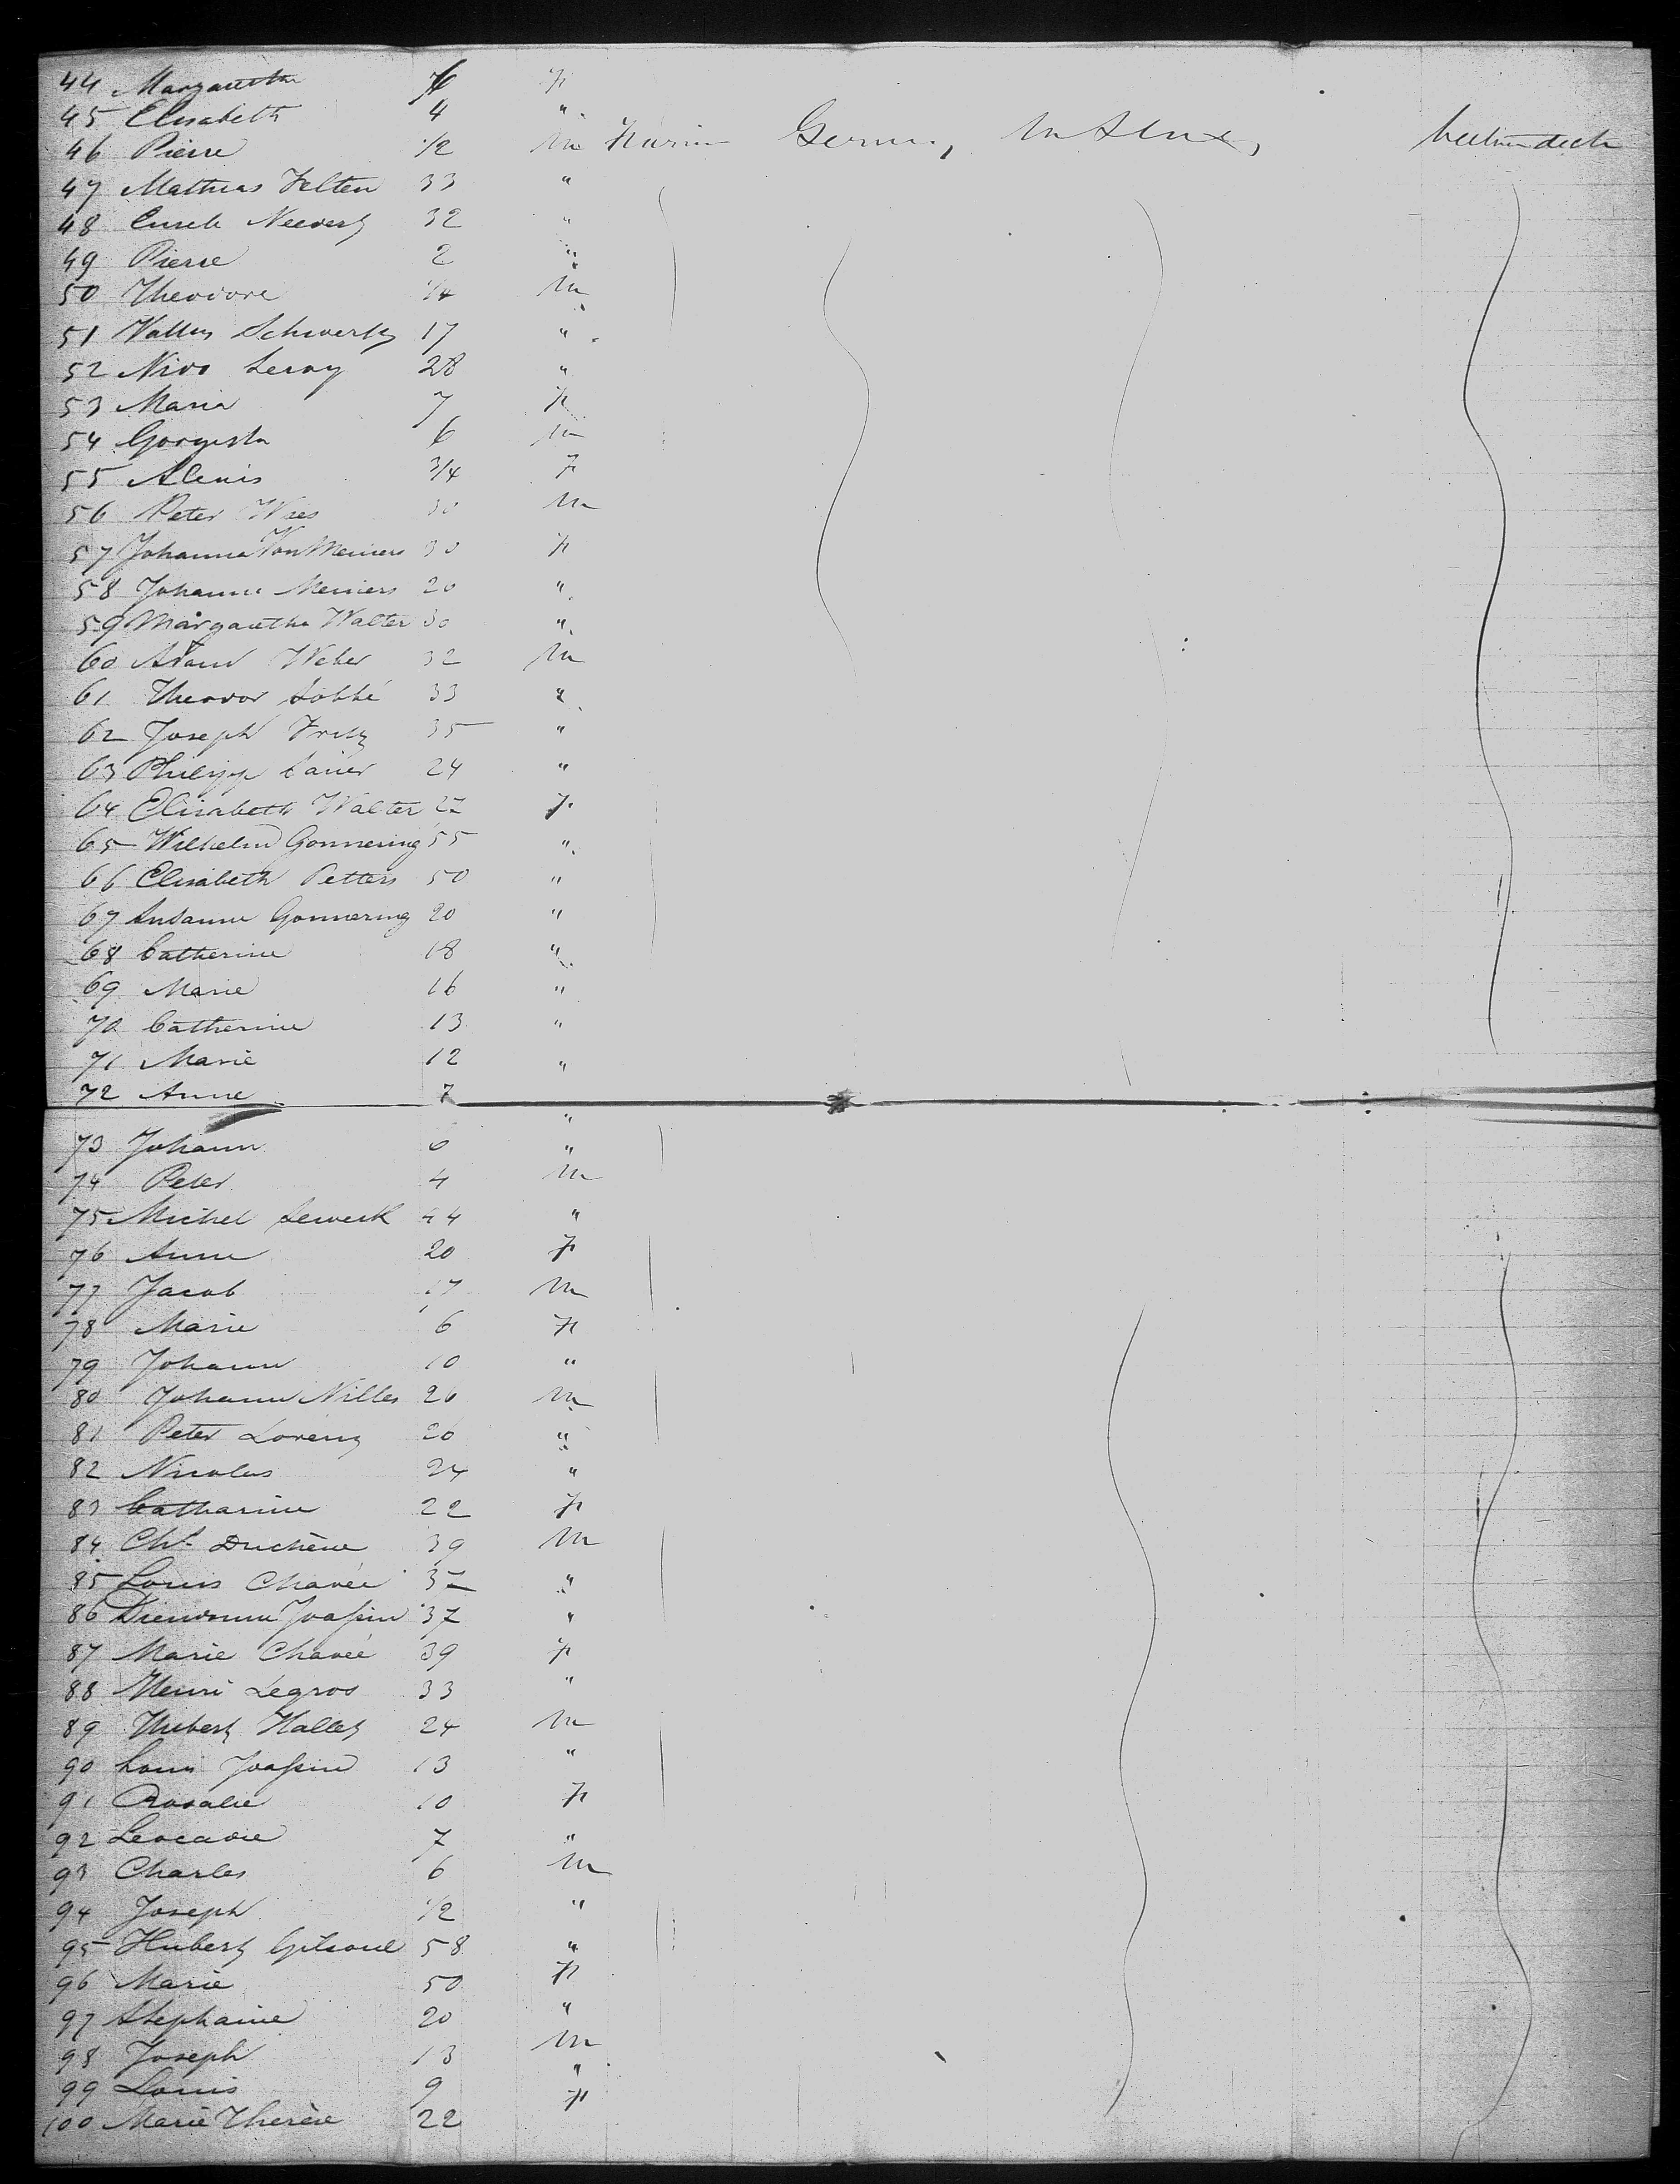 44 Margaretha 6 F
45 Elisabeth 4 "
46 Pierre 1/2 M Germ,
47 Mathias Felten 33 "
48 32 "
49 Pierre 2 "
50 Theodore 1/4 M
51 17 "
52 Leroy 28 "
53 Maria 7 F
54 6 M
55 Alexis 3/4 F
56 Peter Wies 30 M
57 Johanna Von Meiners 30 F
58 Johanna Meiners 20 "
59 Margaretha Walter 30 "
60 Adam Weber 32 M
61 Theodor 33 "
62 Joseph Fritz 35 "
63 Philipp 24 "
64 Elisabeth Walter 22 F
65 Wilhelm Gonnering 55 "
66 Elisabeth Petters 50 "
67 Susanne Gonnering 20 "
68 Catherine 18 "
69 Marie 16 "
70 Catherine 13 "
71 Marie 12 "
72 Anne 7 "
73 Johann 6 "
74 Peter 4 M
75 Michel 44 "
76 Anna 20 F
77 Jacob 17 M
78 Marie 6 F
79 Johann 10 "
80 Johann Nilles 26 M
81 Peter Lorenz 26 "
82 Nicolas 24 "
83 Catharine 22 F
84 Duchène 39 M
85 Louis Chavée "
86 Dieudonne Joassin 37 "
87 Marie Chavée 39 F
88 Henri Legros 33 "
89 Hubert 24 M
90 Louis Joassin 13 "
91 Rosalie 10 F
92 Leocadie 7 "
93 Charles 6 M
94 Joseph 1/2 "
95 Hubert Gilsoul 58 "
96 Marie 50 F
97 Stephanie 20 "
98 Joseph 13 M
99 Louis 9 "
100 Marie Therèse 22 F